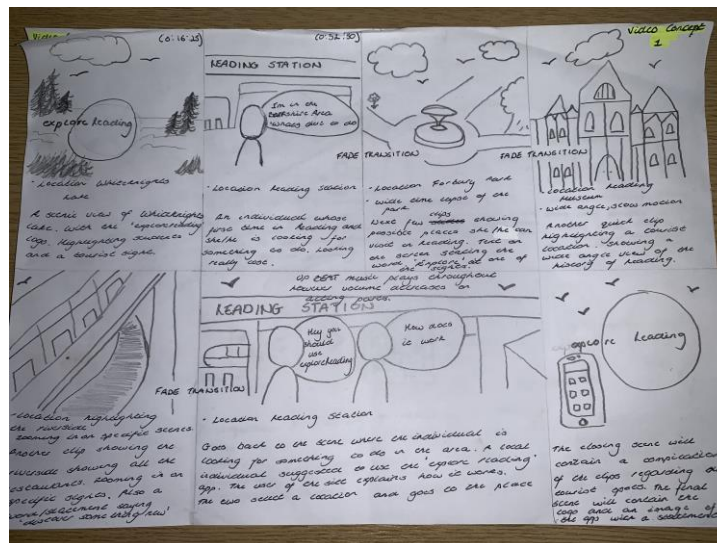 Video Con
(0:16:25)
explore Reading
- Location Whiteknights
lake
A scenic view of Whiteknights
lake, with the 'explorereading'
logo. Highlighting
and a tourist signs.
(0:52:50)
READING STATION
I'm in the
Berkshire Area
whats there to do
FADE TRANSITION
- Location Reading Station
An individual whose
first time in Reading and
she/he is looking for
something to do. Looking
really lost.
FADE TRANSITION
- Location Forbury Park
- wide time lapse of the
park
clips
Next few showing
possible places she/he can
visit in Reading. Text on
the screen reading the
word 'Explore' at one of
the signs.
Video Concept
1
- Location Reading
Museum
- wide angle, slow motion
Another quick clip
highlighting a tourist
location. Showing a
wide angle view of the
history of Reading.
FADE TRANSITION
- Location highlighting
the riverside
zooming in on specific scenes.
Another clip showing the
riverside showing all the
restaurants. Zooming in on
specific signs. Also a
word/statement saying
'discover something new'
UP BEAT music plays throughout
however volume decreases on
acting parts.
READING STATION
Hey you
should
use
explorereading
How does
it work
- Location Reading Station
Goes back to the scene where the individual is
looking for something to do in the area. A local
individual suggested to use the 'explore reading'
app. The user of the site explains how it works.
The two select a location and goes to the place
explore Reading
The closing scene will
contain a complication
of the clips regarding
tourist spots. The final
scene will contain the
logo and an image of
the app with a statement